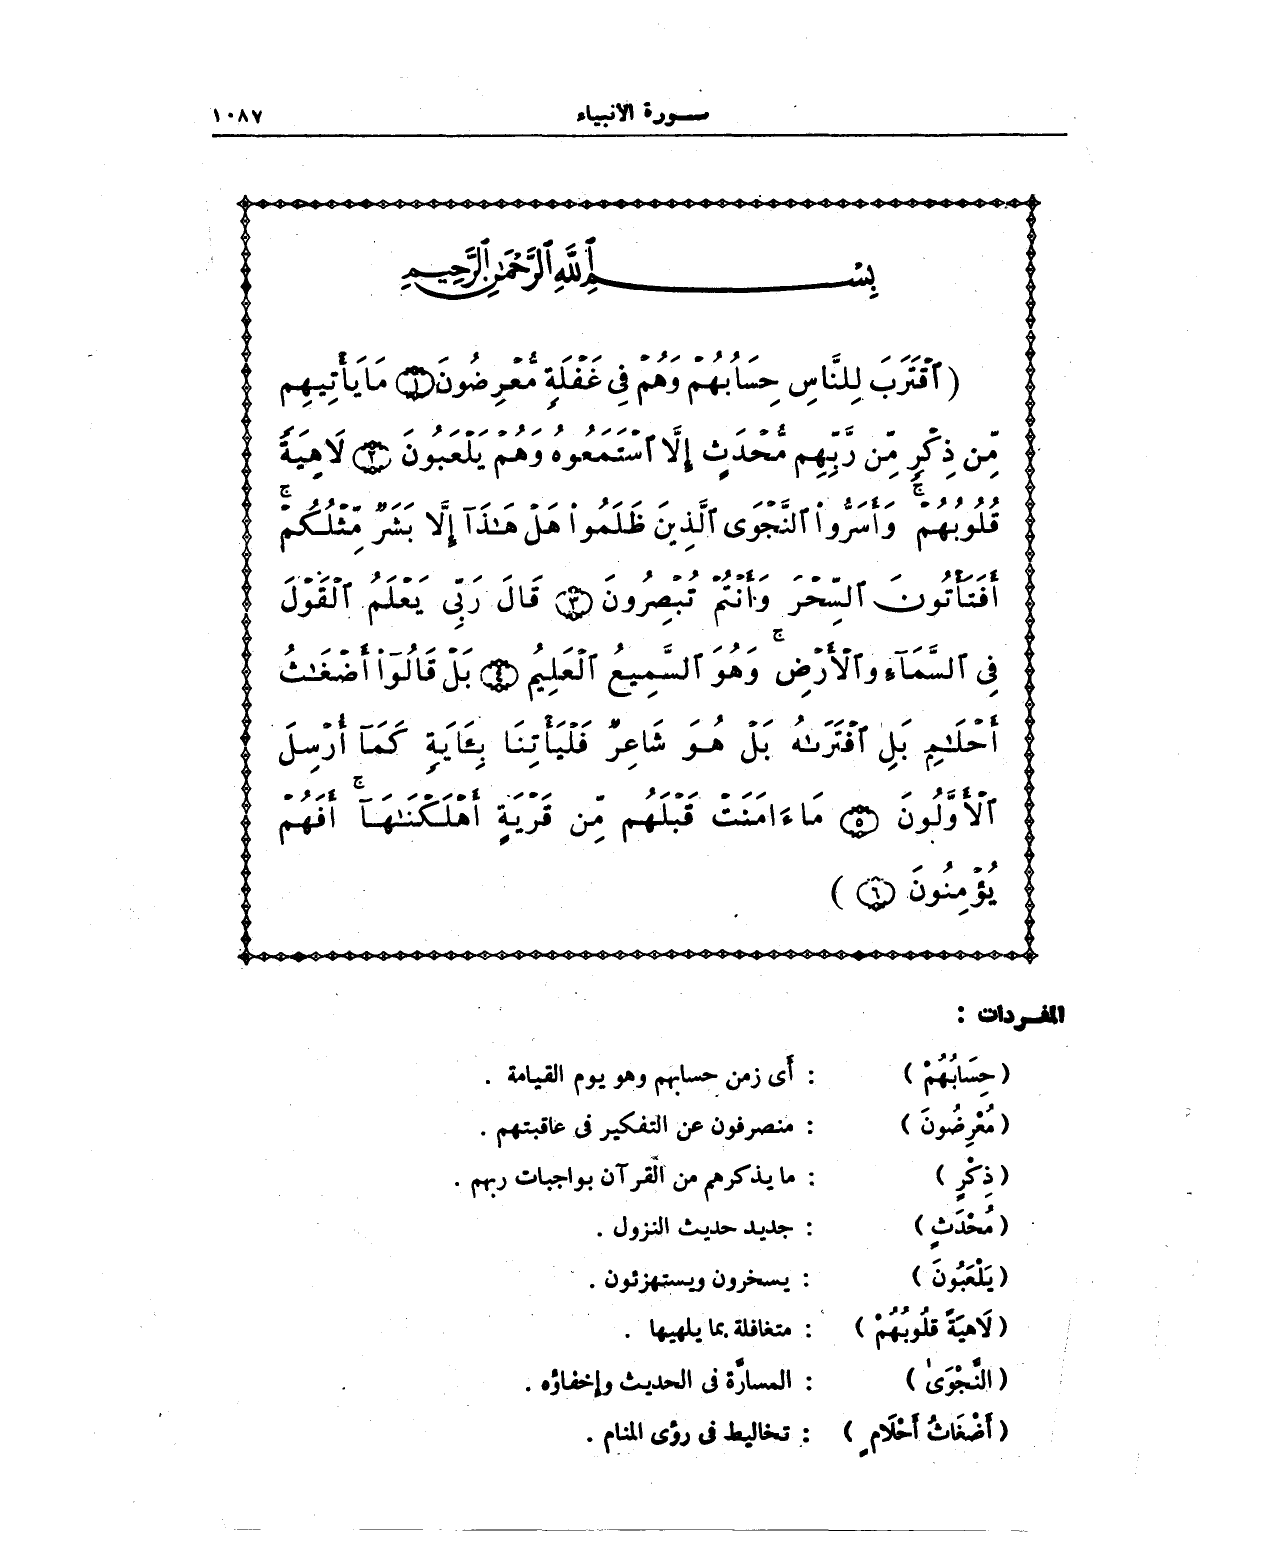 سورة الأنبياء ١٠٨٧
بِسْمِ ٱللَّهِ ٱلرَّحْمَٰنِ ٱلرَّحِيمِ
( ٱقْتَرَبَ لِلنَّاسِ حِسَابُهُمْ وَهُمْ فِى غَفْلَةٍ مُّعْرِضُونَ ١ مَا يَأْتِيهِم
مِّن ذِكْرٍ مِّن رَّبِّهِم مُّحْدَثٍ إِلَّا ٱسْتَمَعُوهُ وَهُمْ يَلْعَبُونَ ٢ لَاهِيَةً
قُلُوبُهُمْ ۚ وَأَسَرُّوا۟ ٱلنَّجْوَى ٱلَّذِينَ ظَلَمُوا۟ هَلْ هَـٰذَآ إِلَّا بَشَرٌ مِّثْلُكُمْ ۚ
أَفَتَأْتُونَ ٱلسِّحْرَ وَأَنتُمْ تُبْصِرُونَ ٣ قَالَ رَبِّى يَعْلَمُ ٱلْقَوْلَ
فِى ٱلسَّمَآءِ وَٱلْأَرْضِ ۚ وَهُوَ ٱلسَّمِيعُ ٱلْعَلِيمُ ٤ بَلْ قَالُوٓا۟ أَضْغَـٰثُ
أَحْلَـٰمٍ بَلِ ٱفْتَرَىٰهُ بَلْ هُوَ شَاعِرٌ فَلْيَأْتِنَا بِـَٔايَةٍ كَمَآ أُرْسِلَ
ٱلْأَوَّلُونَ ٥ مَآ ءَامَنَتْ قَبْلَهُم مِّن قَرْيَةٍ أَهْلَكْنَـٰهَآ ۚ أَفَهُمْ
يُؤْمِنُونَ ٦ )
المفردات :
( حِسَابُهُمْ ) : أَى زمن حسابهم وهو يوم القيامة .
( مُعْرِضُونَ ) : منصرفون عن التفكير فى عاقبتهم .
( ذِكْرٍ ) : ما يذكرهم من القرآن بواجبات ربهم .
( مُحْدَثٍ ) : جديد حديث النزول .
( يَلْعَبُونَ ) : يسخرون ويستهزئون .
( لَاهِيَةً قلُوبُهُمْ ) : متغافلة بما يلهيها .
( النَّجْوَىٰ ) : المسارَّة فى الحديث وإخفاؤه .
( أَضْغَاثُ أَحْلَامٍ ) : تخاليط فى رؤى المنام .